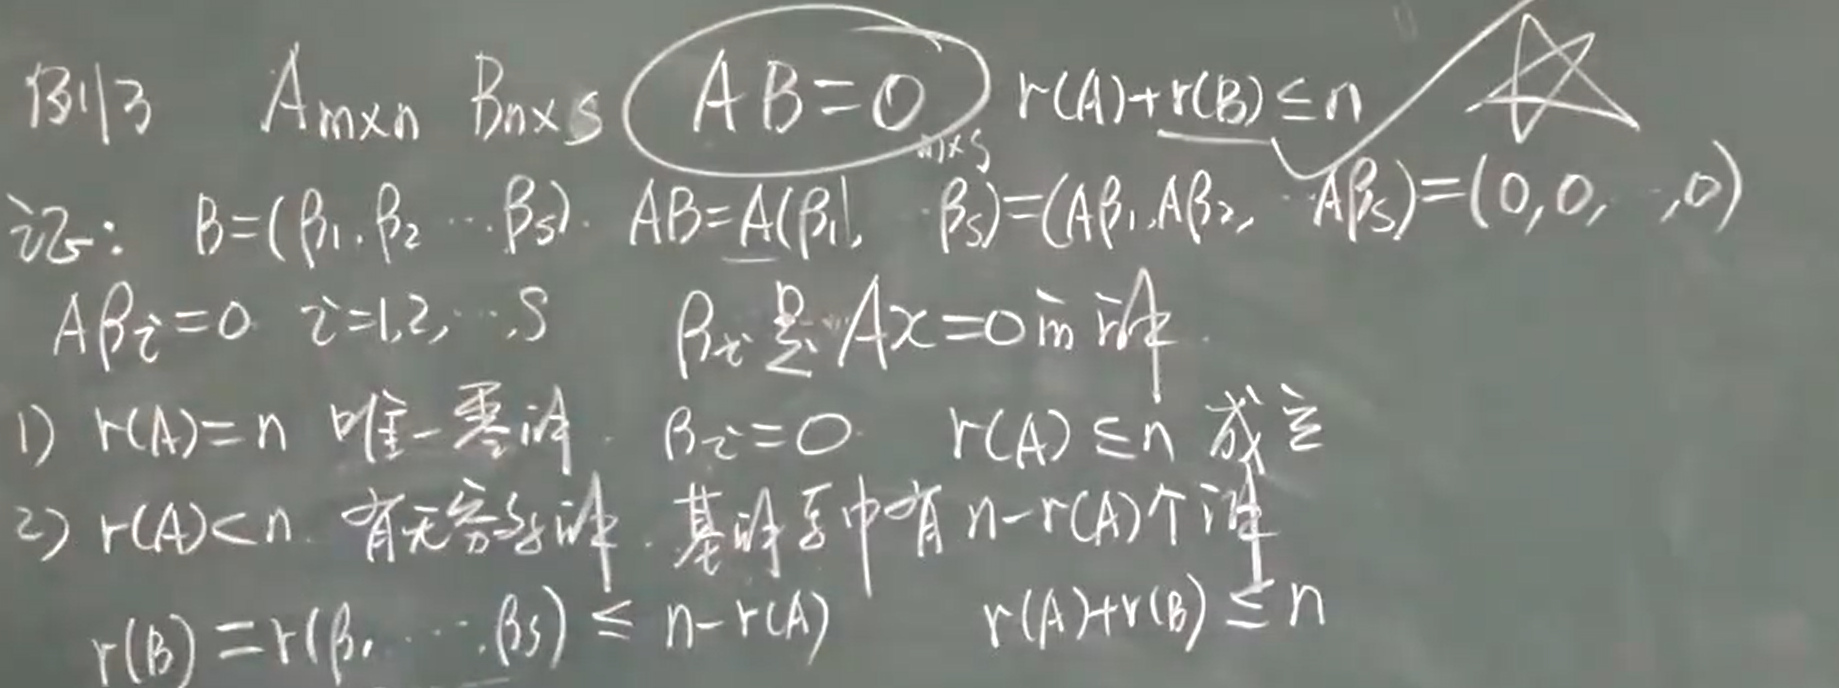 例3 Am×n Bn×s AB=0m×s r(A)+r(B)≤n
证: B=(β1,β2…βs). AB=A(β1, …βs)=(Aβ1,Aβ2,…Aβs)=(0,0,…,0)
Aβi=0 i=1,2,…,s βi是Ax=0的解.
1) r(A)=n 唯一零解. βi=0 r(A)≤n 成立
2) r(A)<n. 有无穷多解. 基解系中有n-r(A)个解
r(B)=r(β1,…,βs)≤n-r(A) r(A)+r(B)≤n